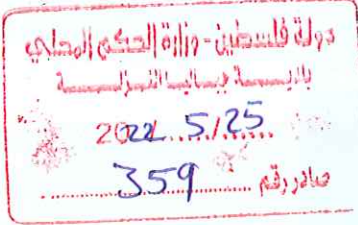 دولة فلسطين - وزارة الحكم المحلي
بلديـــة
2022...5/25
صادر رقم 359